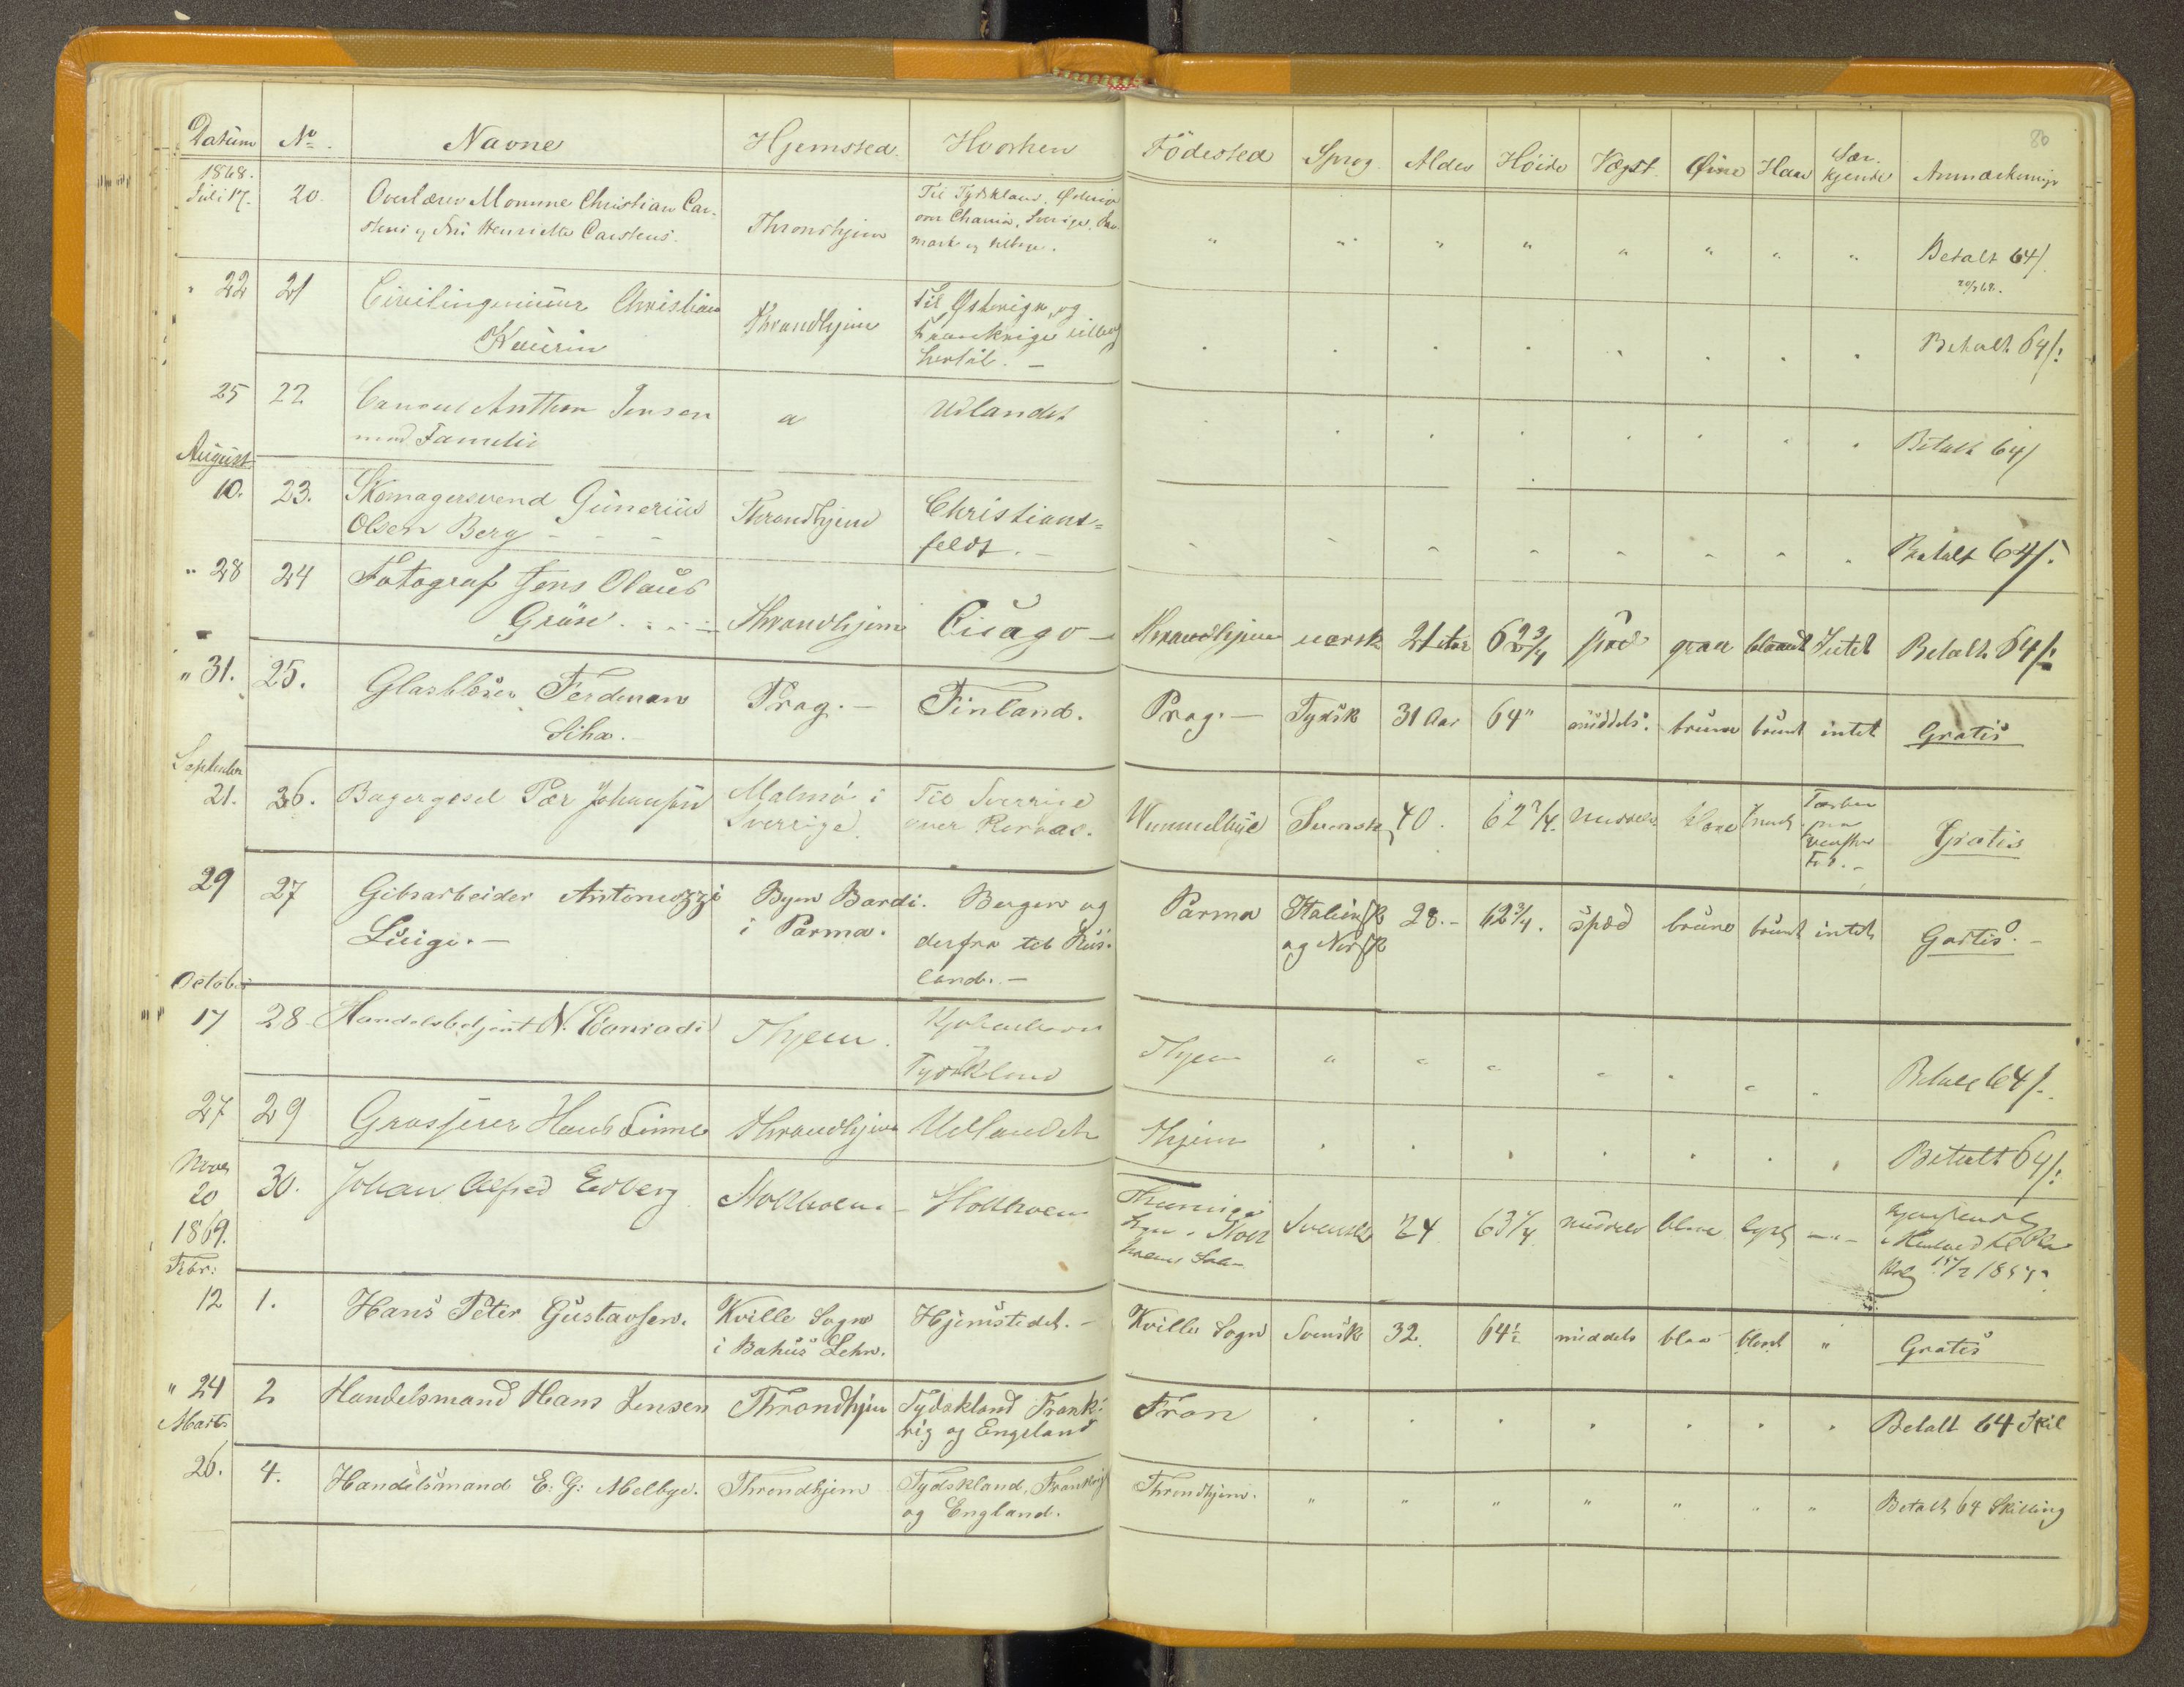 80
Datum No Navne Hjemsted Hvorhen Födested Sprog Alder Höide Vægst Øine Haar Særkjende Anmærkninger
1868.
Juli 17. 20. Overlærer Momme Christian Car-
stens og Fru Henriette Carstens. Throndhjem Til Tydskland, Østerrig
over Chania, Sverige, Dan-
mark og tilbage. " " " " " " " " Betalt 64/
20/7 68.
" 22 21 Civilingenieur Christian
Kaurin Throndhjem Til Østerige, og
Frankrige tilbage
hertil. - Betalt 64/:
25 22 Consul Anthon Jenssen
med Familie " Udlandet Betalt 64/
August
10. 23. Skomagersvend Gunerius
Olsen Berg - - - Throndhjem Christians=
feldt. - Betalt 64/.
" 28 24 Fotograf Jens Olaus
Gröse. Throndhjem Cicago - Throndhjem norsk 21 Aar 62 3/4 spæd graa blondt Intet Betalt 64/:
" 31. 25. Glasblæser Ferdenan
Siha. - Prag. - Finland. Prag. - Tydsk 31 Aar 64" middels. brune brunt intet Gratis
September
21. 26. Bagergesel Per Johansson Malmö i
Sverrige. Til Sverrige
over Roraas. Wemmelbye Svensk 40. 62 1/4. middels blaae
venstre
Fod. - Gratis
29 27 Gibsarbeider Antoniozzi
Luigi. - Byen Bardi.
i Parma. Bergen og
derfra tel Rus-
land. - Parma Italiensk
og Norsk 28. - 62 3/4. spæd brune brunt intet Gartis. -
October
17 28 Handelsbetjent N. Conradi Thjem. Kjøbenhavn
Tydskland Thjem " " " " " " " Betalt 64/.
27 29 Grosserer Hans Finne Throndhjem Udlandet Thjem Betalt 64/:
Novbr
20 30. Johan Alfred Edberg Stokholm - Stokholm Svensk 24 63 1/4 middels blaae lyst - " -
1869.
Febr:
12 1. Hans Peter Gustavsen. Kville Sogn
i Bahus Lehn. Hjemstedet. - Kville Sogn Svensk 32. 64 1/2 middels blaa blont " Gratis
" 24 2 Handelsmand Hans Jensen Throndhjem Tydskland Frank-
rig og Engeland Fron Betalt 64 Skil
Marts
26. 4. Handelsmand E: G: Melbye. Throndhjem Tydskland, Frankrig
og England. Throndhjem. " " " " " " " Betalt 64 Skilling